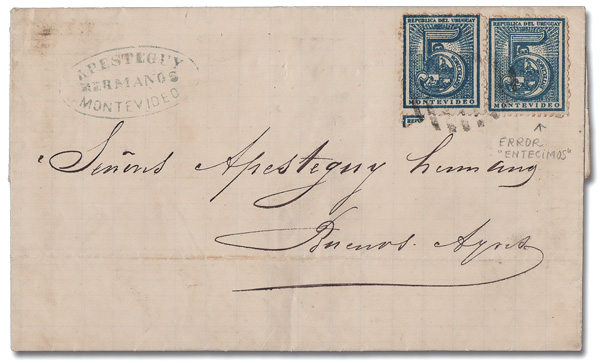 APESTEGUY
HERMANOS
MONTEVIDEO
REPUBLICA DEL URUGUAY
5
MONTEVIDEO
REPUBLICA DEL URUGUAY
5
MONTEVIDEO
REPU
ERROR
"ENTECIMOS"
Señores Apesteguy hermanos
Buenos Ayres